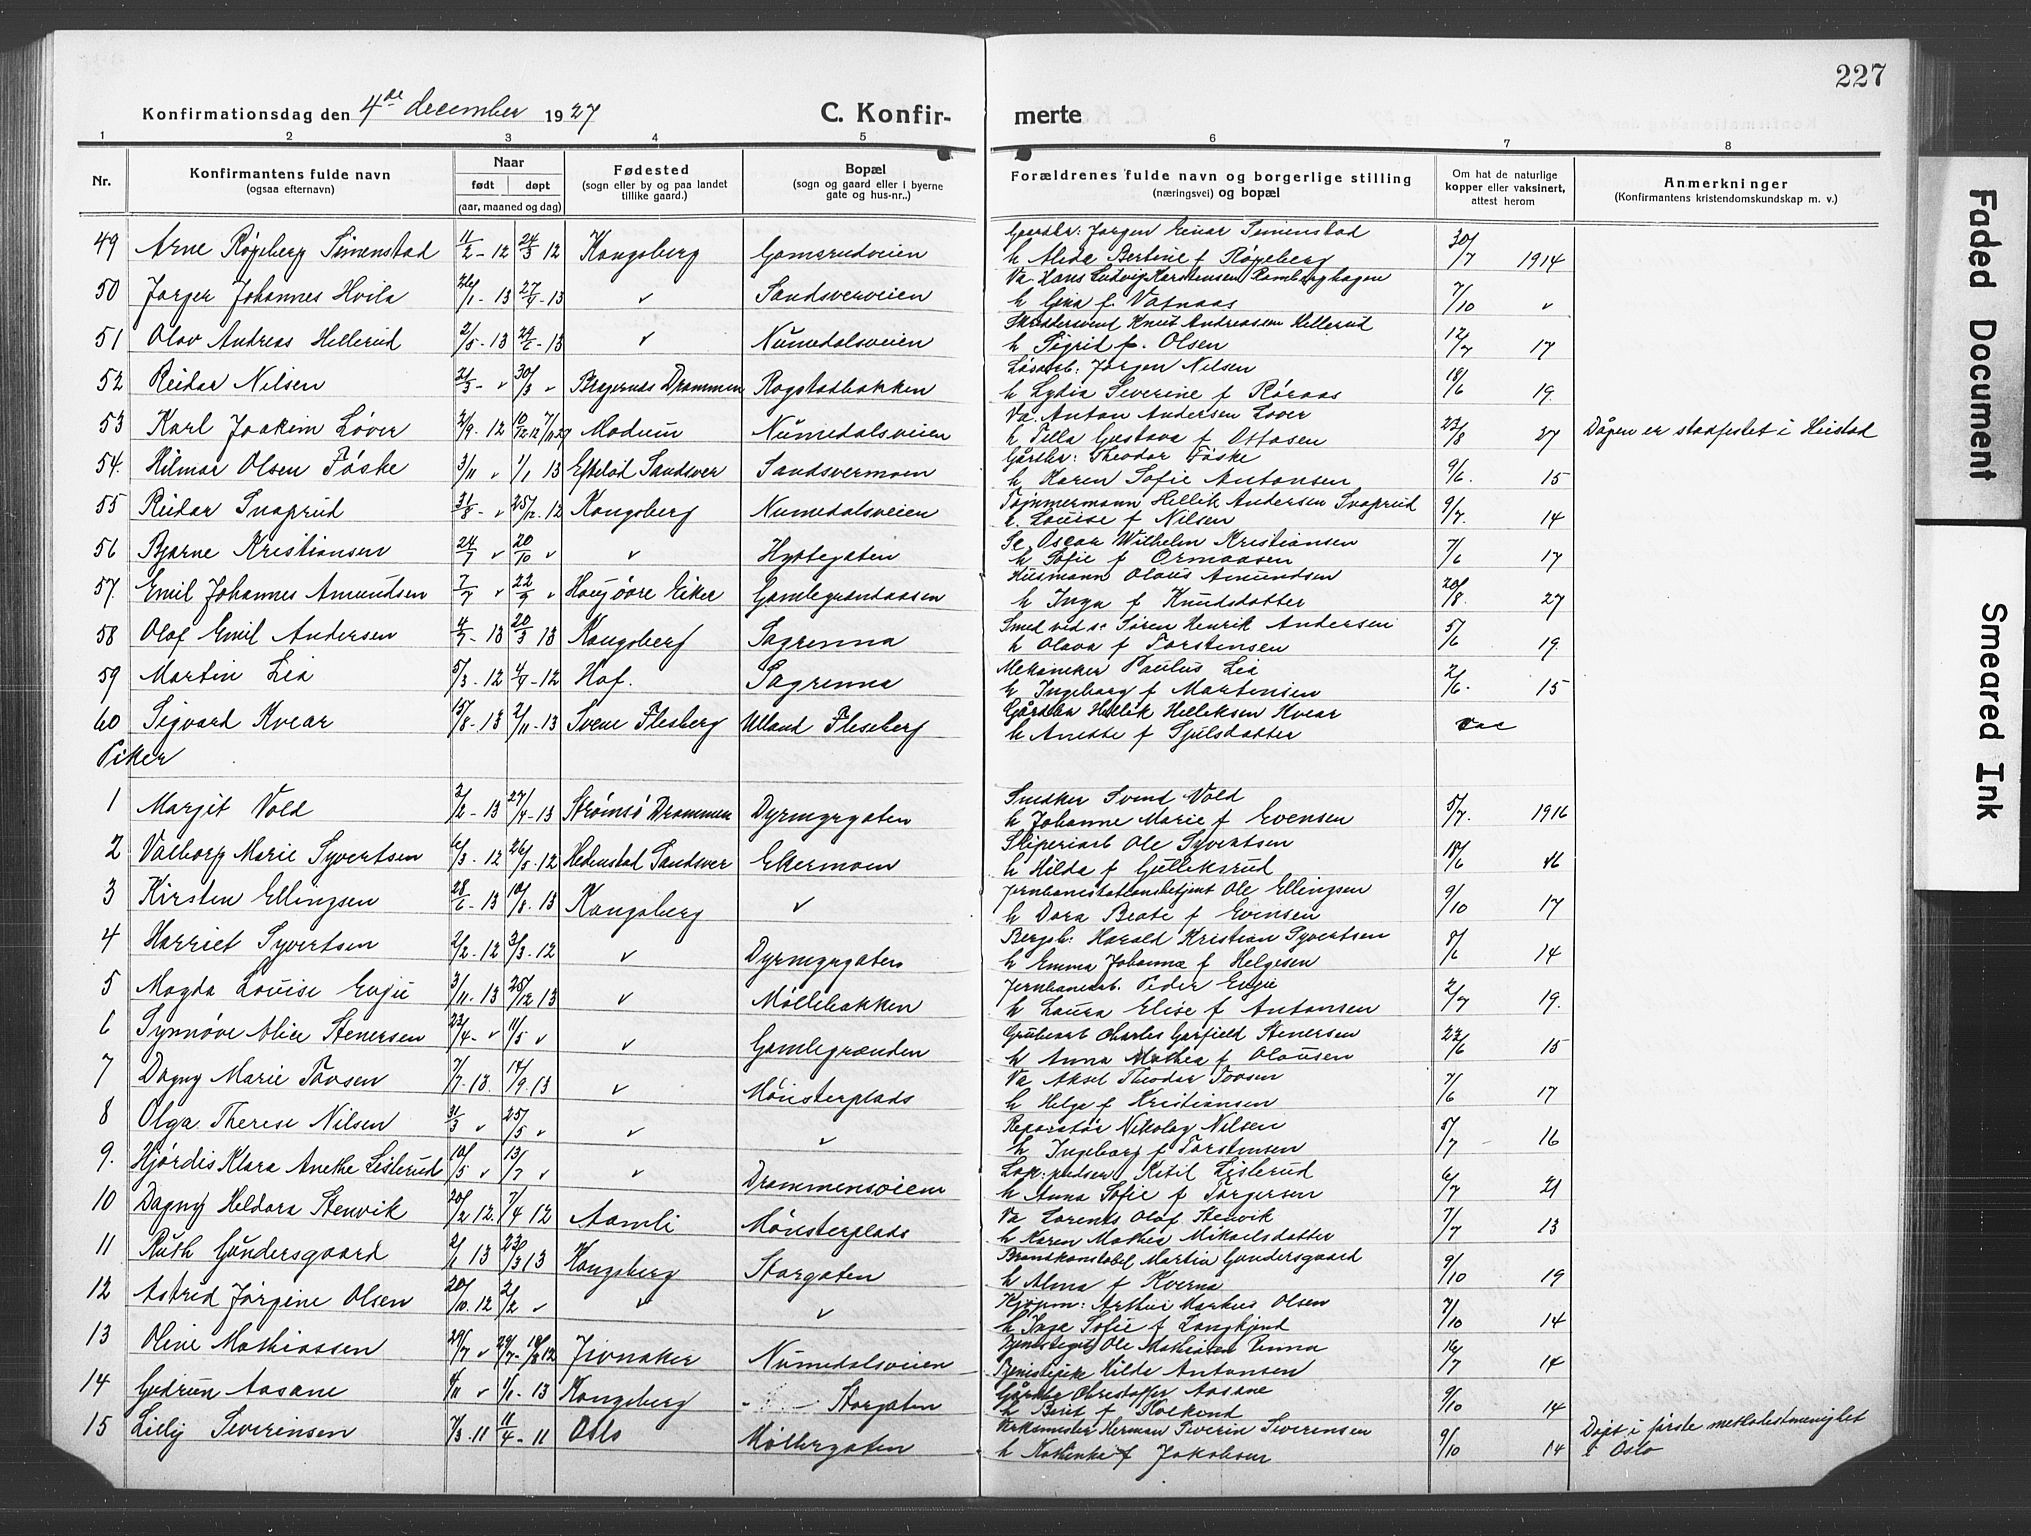 227
Konfirmationsdag den 4de december 1927
C. Konfir- merte
1 2 3 4 5 6 7 8
Nr.
Konfirmantens fulde navn
(ogsaa efternavn)
Naar
født døpt
(aar, maaned og dag)
Fødested
(sogn eller by og paa landet
tillike gaard.)
Bopæl
(sogn og gaard eller i byerne
gate og hus-nr..)
Forældrenes fulde navn og borgerlige stilling
(næringsvei) og bopæl
Om hat de naturlige
kopper eller vaksinert,
attest herom
Anmerkninger
(Konfirmantens kristendomskundskap m. v.)
49 Arne Røgeberg Simenstad 11/2 - 12 24/3 12 Kongsberg Gomsrudveien Gaardbr: Jørgen Einar Simenstad
h Alida Bertine f Røgeberg 30/7 1914
50 Jørger Johannes Hvila 26/1 - 13 27/4 - 13 " Sandsverveien Va. Hans Ludvig Karstensen Ramberghagen
h Gina f. Vatnaas 7/10 "
51 Olav Andreas Hellerud 2/5 - 13 29/6 - 13 " Numedalsveien Skreddersvend Knut Andreassen Hellerud
h Sigrid f. Olsen 12/7 17
52 Reidar Nilsen 21/3 - " 30/3 " Bragernes Drammen Rogstadbakken Løsarb: Jørgen Nilsen
h Lydia Severine f Røraas 18/6 19
53 Karl Joakim Løver 2/9 - 12 19/12 12 7/11 27 Modum Numedalsveien Va. Anton Andersen Løver
h Tella Gustava f Ottosen 23/8 27 Dåpen er stadfestet i Heistad
54. Hilmar Olsen Føske 3/11 " 1/1 13 Efteløt Sandsver Sandsvermoen Gårdbr: Theodor Føske
h Karen Sofie Antonsen 9/6. 15
55 Reidar Snaprud 31/8 - " 25/12. 12 Kongsberg Numedalsveien Tømmermann Hellik Andersen Snaprud
h. Louise f Nilsen 9/7. 14
56 Bjarne Kristiansen 24/7 " 20/10 " " Hyttegaten Se. Oscar Wilhelm Kristiansen
h Sofie f Ormaasen 7/6 17
57. Emil Johannes Amundsen 7/7 " 22/9 " Haug øvre Eiker Gamlegrændaasen Husmann Olaus Amundsen
h Inga f Knudsdatter 20/8. 27
58 Olaf Emil Andersen 4/2 - 13 20/3 13 Kongsberg Sagrenna Smed ved s: Søren Henrik Andersen
h Olava f Torstensen 5/6 19.
59 Martin Lia 5/3 - 12 4/4 - 12 Hof. Sagrenna Mekaniker Paulus Lia
h Ingeborg f Martensen 2/6. 15
60 Sigvard Kvear 15/8 - 13 2/11 - 13 Svene Flesberg Ulland Flesberg Gårdbr Hellik Helliksen Kvear
h Anette f Sjulsdatter vac
Piker
1 Margit Vold 3/2 - 13 27/4 - 13 Strømsø Drammen Dyrmyrgaten Snekker Svend Vold
h Johanne Marie f Evensen 5/7. 1916
2 Valborg Marie Syvertsen 6/3 - 12 26/5 - 12 Hedenstad Sandsver Ekermoen Sliperiarb Ole Syvertsen
h Hilda f Gulleksrud 18/6 16
3 Kirsten Ellingsen 28/6 - 13 10/8. 13 Kongsberg " Jernbanestationsbetjent Ole Ellingsen
h Dora Beate f Evensen 9/10 17
4 Harriet Syvertsen 2/2 - 12 3/3 - 12 " Dyrmyrgaten Bergsb: Harald Kristian Syvertsen
h Emma Johanna f Helgesen 8/6 14
5 Magda Louise Evju 3/11 - 13 25/12 13 " Møllebakken Jernbanearb. Peder Evju
h Laura Elise f Antonsen 2/7 19.
6 Synnøve Alice Stenersen 23/4 - " 11/5 " " Gamlegrænden Grubearb Charles Garfield Stenersen
h Anna Mathea f Olausen 23/6 15
7 Dagny Marie Tovsen 7/7 - 13. 14/9. 13 " Mønsterplads Va Aksel Theodor Tovsen
h Helga f Kristiansen 7/6 17
8 Olga Therese Nilsen 31/3 " 25/5 " " " Reparatør Nikolay Nilsen
h. Ingeborg f Torstensen 5/7 - 16
9. Hjørdis Klara Anethe Lislerud 10/5 " 13/7 " " Drammensveien Kitil Lislerud
h Anna Sofie f Torgersen 6/7 21
10 Dagny Heldora Stenvik 20/2 12. 7/4 12 Aamli Mønsterplads Va Lorents Olaf Stenvik
h Karen Mathea Mikaelsdatter 7/7 13
11 Ruth Gundersgaard 2/1 13 23/3 13 Kongsberg Storgaten Brandkonstabel Martin Gundersgaard
h Alma f Kverna 9/10 19
12 Astrid Jørgine Olsen 20/10. 12 2/2 " " " Kjøpm: Arthur Markus Olsen
h Inge Sofie f Langkjend 7/10 14
13 Oline Mathiassen 29/7 " 29/7 - 18/8 12 Jevnaker Numedalsveien Ole Mathisen Rinna
Tjenestepike Hilda Antonsen 16/7 14
14 Gudrun Aasane 4/11 " 1/1 - 13 Kongsberg Storgaten Gårdbr Christoffer Aasane
h Berit f Kolkind 9/10 14
15 Lilly Severinsen 7/3 - 11 11/4 - 11 Oslo Møllergaten Verkmester Herman Severin Severinsen
h Mathinka f Jakobsen 9/10 14 Døpt i første methodistmenighet
i Oslo
Faded Document
Smeared Ink